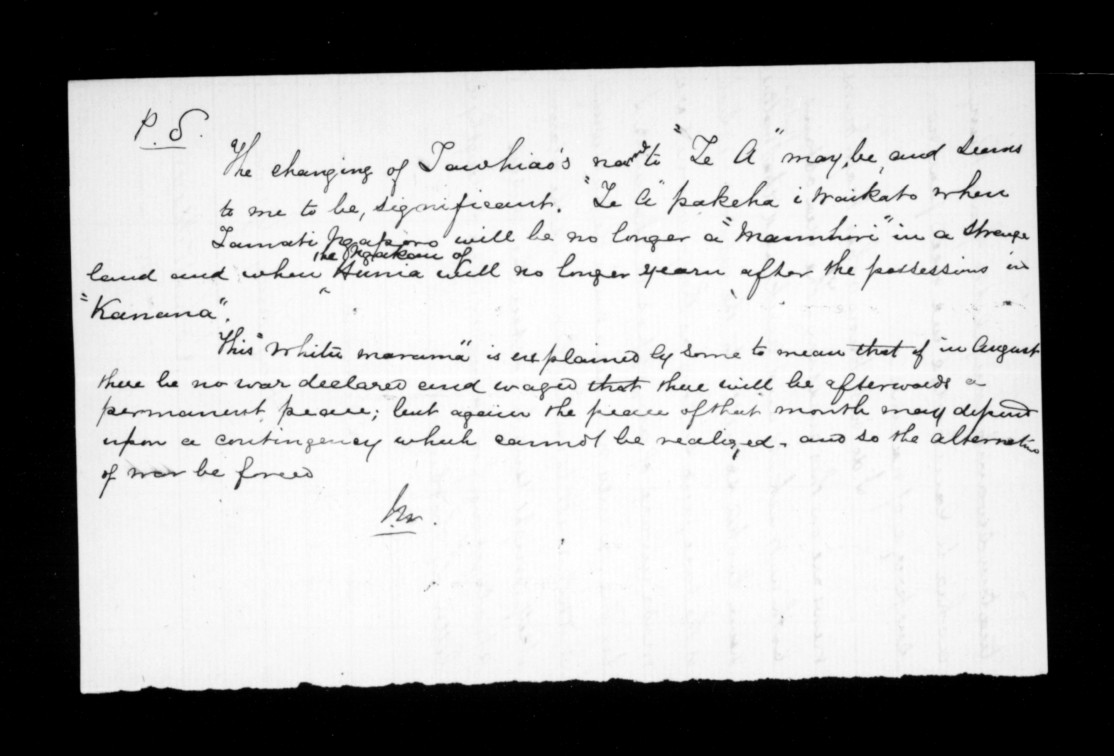 P.S.
The changing of Tawhiao's name to "Te A" may, be, and seems
to me to be, significant. "Te A" pakeha i Waikato when
Tamati Ngaporo will be no longer a "Manuhiri" in a strange
the Ngakau of
land and when Hunia will no longer yearn after the possessions in
"Kanana".
This "Whitu marama" is explained by some to mean that if in August
there be no war declared and waged that there will be afterwards a
permanent peace; but again the peace of that month may depend
upon a contingency which cannot be realized - and so the alternative
of war be forced